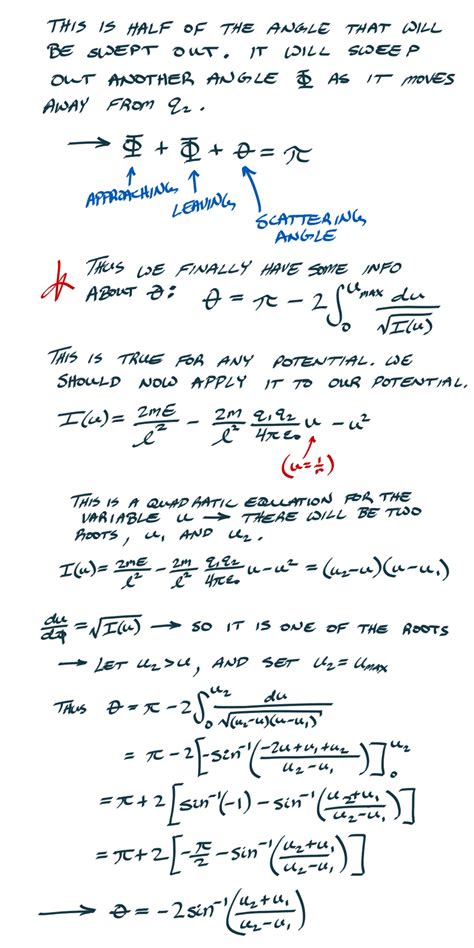 THIS IS HALF OF THE ANGLE THAT WILL
BE SWEPT OUT. IT WILL SWEEP
OUT ANOTHER ANGLE Φ AS IT MOVES
AWAY FROM q₂.
→ Φ + Φ + θ = π
APPROACHING
LEAVING
SCATTERING
ANGLE
THUS WE FINALLY HAVE SOME INFO
ABOUT θ: θ = π - 2∫₀^{u_MAX} du/√(I(u))
THIS IS TRUE FOR ANY POTENTIAL. WE
SHOULD NOW APPLY IT TO OUR POTENTIAL.
I(u) = 2mE/ℓ² - 2m/ℓ² q₁q₂/4πε₀ u - u²
(u = 1/r)
THIS IS A QUADRATIC EQUATION FOR THE
VARIABLE u → THERE WILL BE TWO
ROOTS, u₁ AND u₂.
I(u) = 2mE/ℓ² - 2m/ℓ² q₁q₂/4πε₀ u - u² = (u₂-u)(u-u₁)
du/dφ = √(I(u)) → SO IT IS ONE OF THE ROOTS
→ LET u₂>u, AND SET u₂ = u_MAX
THUS θ = π - 2∫₀^{u₂} du/√((u₂-u)(u-u₁))
= π - 2[-sin⁻¹((-2u+u₁+u₂)/(u₂-u₁))]₀^{u₂}
= π + 2[sin⁻¹(-1) - sin⁻¹((u₂+u₁)/(u₂-u₁))]
= π + 2[-π/2 - sin⁻¹((u₂+u₁)/(u₂-u₁))]
→ θ = -2sin⁻¹((u₂+u₁)/(u₂-u₁))